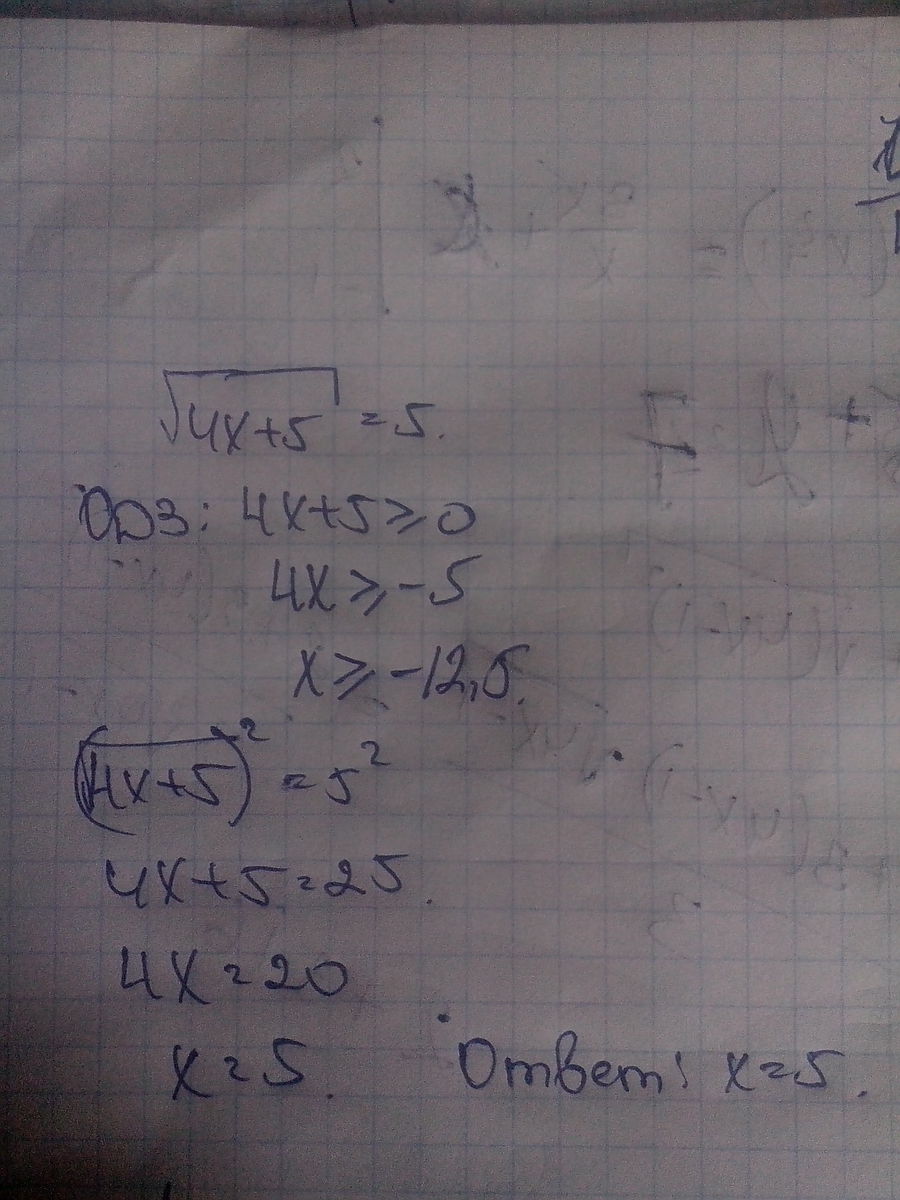 √4x+5 = 5.
ОДЗ: 4x+5 ⩾ 0
4x ⩾ -5
x ⩾ -12,5.
(√4x+5)² = 5²
4x+5 = 25.
4x = 20
x = 5.
Ответ: x = 5.